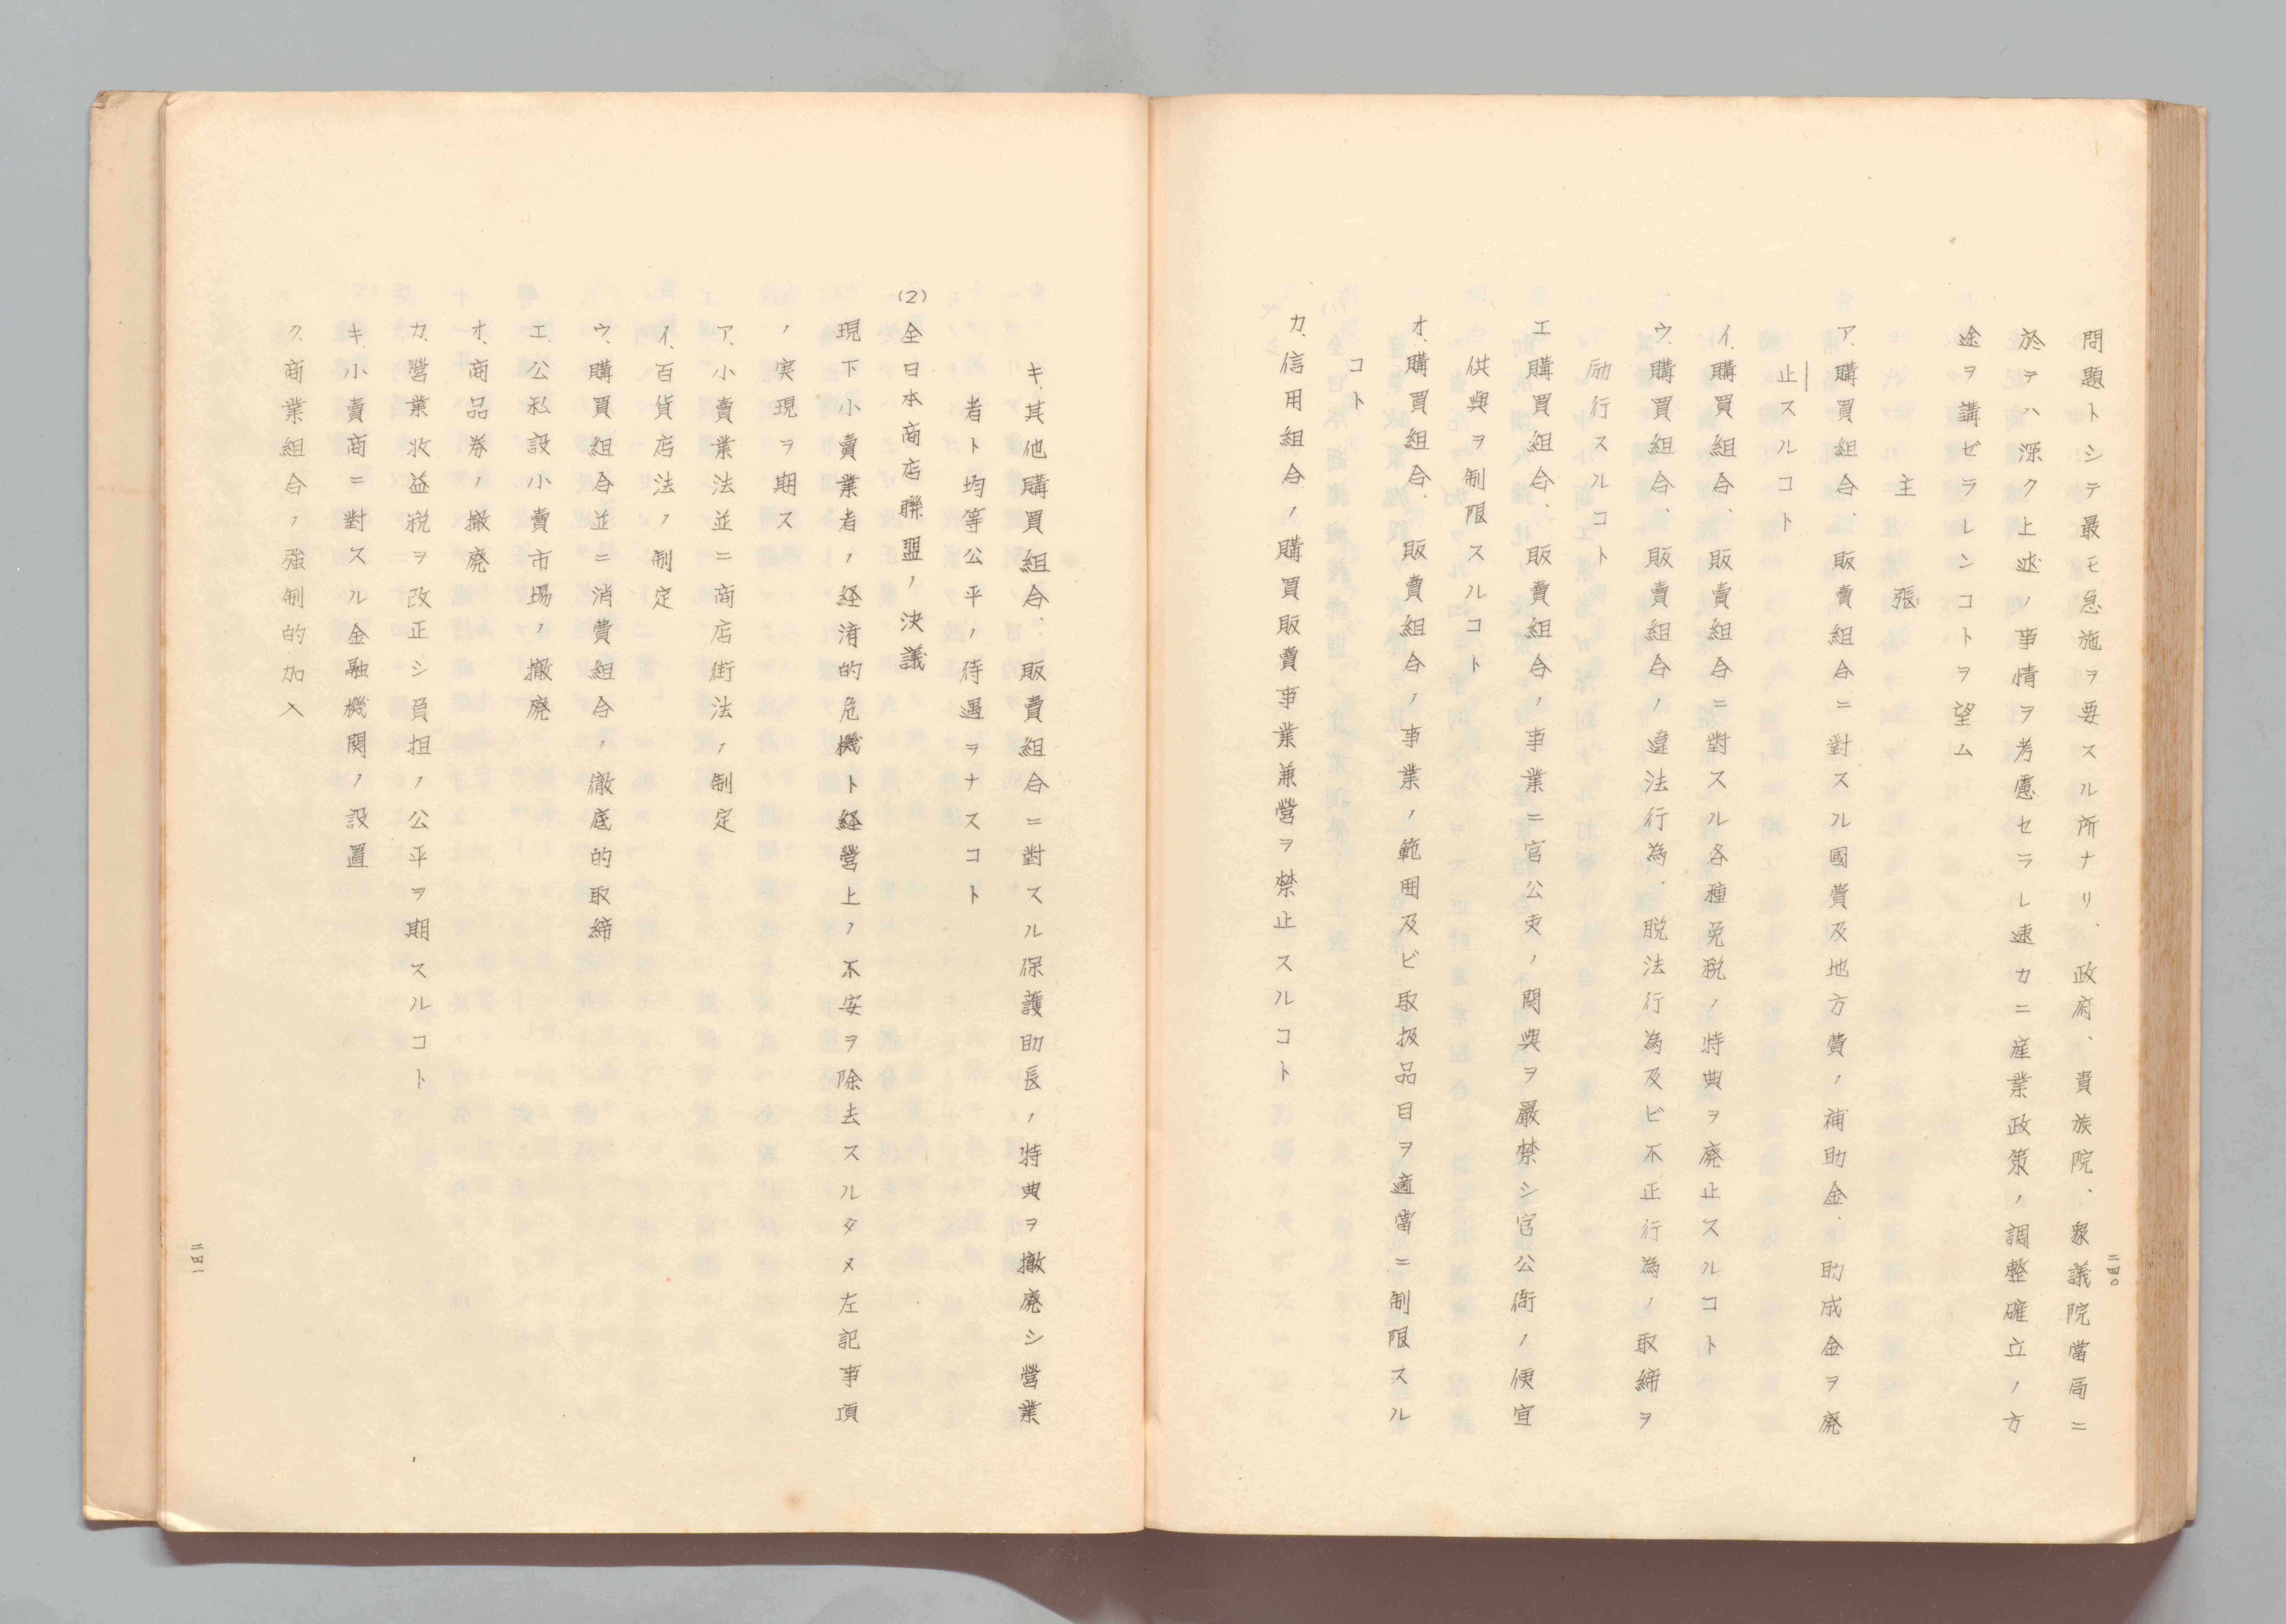 問題トシテ最モ急施ヲ要スル所ナリ、政府、貴族院、衆議院當局ニ
於テハ深ク上述ノ事情ヲ考慮セラレ速カニ産業政策ノ調整確立ノ方
途ヲ講ゼラレンコトヲ望ム
主張
ア、購買組合、販賣組合ニ對スル國費及地方費ノ補助金、助成金ヲ廃
止スルコト
イ、購買組合、販賣組合ニ對スル各種免税ノ特典ヲ廃止スルコト
ウ、購買組合、販賣組合ノ違法行為、脱法行為及ビ不正行為ノ取締ヲ
励行スルコト
エ、購買組合、販賣組合ノ事業ニ官公吏ノ関與ヲ嚴禁シ官公衙ノ便宜
供與ヲ制限スルコト
オ、購買組合、販賣組合ノ事業ノ範囲及ビ取扱品目ヲ適當ニ制限スル
コト
カ、信用組合ノ購買販賣事業兼營ヲ禁止スルコト
二四〇
キ、其他購買組合、販賣組合ニ對スル保護助長ノ特典ヲ撤廃シ營業
者ト均等公平ノ待遇ヲナスコト
(2)全日本商店聯盟ノ決議
現下小賣業者ノ経済的危機ト経營上ノ不安ヲ除去スルタメ左記事項
ノ実現ヲ期ス
ア、小賣業法並ニ商店街法ノ制定
イ、百貨店法ノ制定
ウ、購買組合並ニ消費組合ノ徹底的取締
エ、公私設小賣市場ノ撤廃
オ、商品券ノ撤廃
カ、營業收益税ヲ改正シ負担ノ公平ヲ期スルコト
キ、小賣商ニ對スル金融機関ノ設置
ク、商業組合ノ強制的加入
二四一